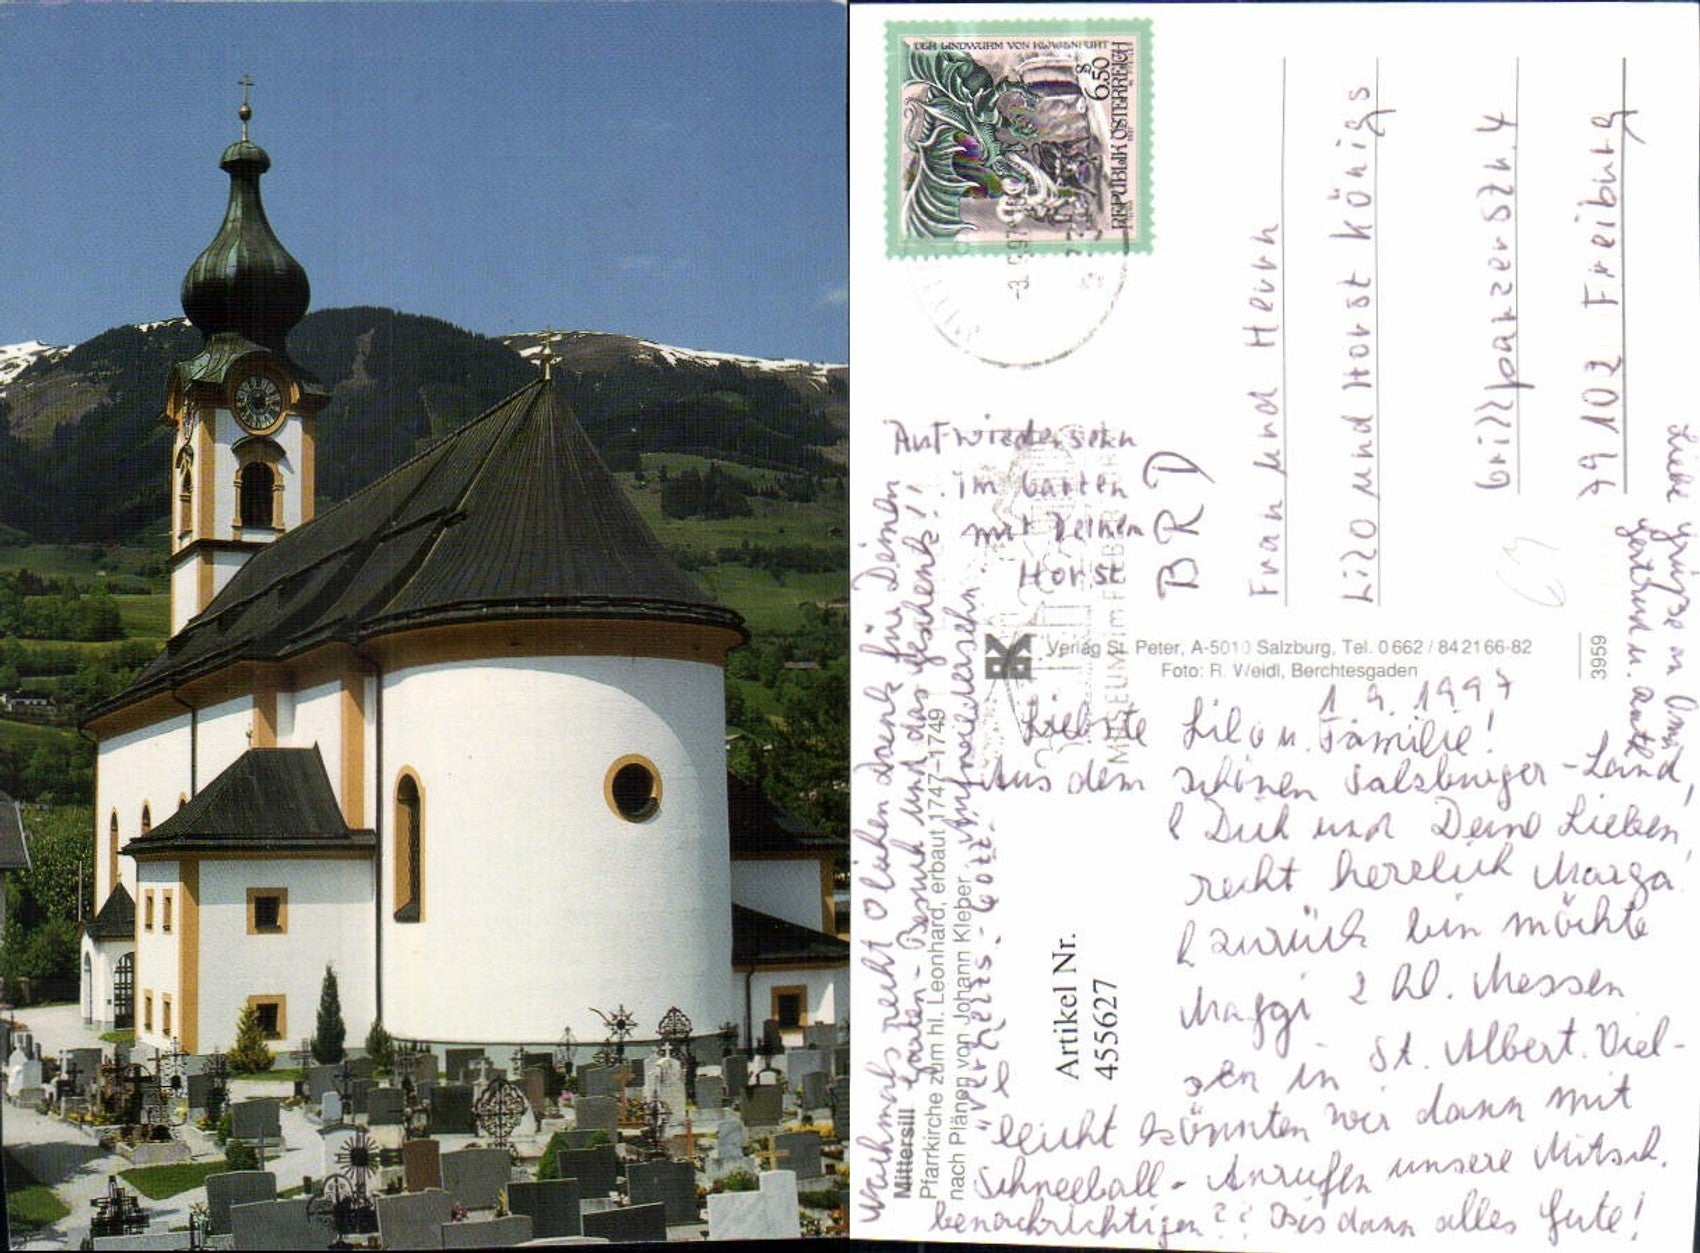 DER LINDWURM VON KLAGENFURT
S 6.50
REPUBLIK ÖSTERREICH
Frau und Herrn
Lilo und Horst Königs
Grillparzerstr. 4
79102 Freiburg
BRD
Auf wiedersehn
im Garten
mit Deinem
Horst
Verlag St. Peter, A-5010 Salzburg, Tel. 0 662 / 84 21 66-82
Foto: R. Weidl, Berchtesgaden
3959
MUSEUM im FELBER
1.9.1997
Liebste Lilo u. Familie!
Aus dem schönen Salzburger-Land,
Dich und Deine Lieben,
recht herzlich Marga.
zurück bin möchte
Maggi 2 hl. Messen
in St. Albert. Viel-
leicht könnten wir dann mit
Schneeball-Anrufen unsere Mitsch.
benachrichtigen?? Bis dann alles Gute!
Nochmals recht Danke für Deinen
Garten-Besuch und das Geschenk!
Liebe Grüsse an
Mittersill
Pfarrkirche zum hl. Leonhard, erbaut 1747-1749
nach Plänen von Johann Kleber
Artikel Nr.
455627